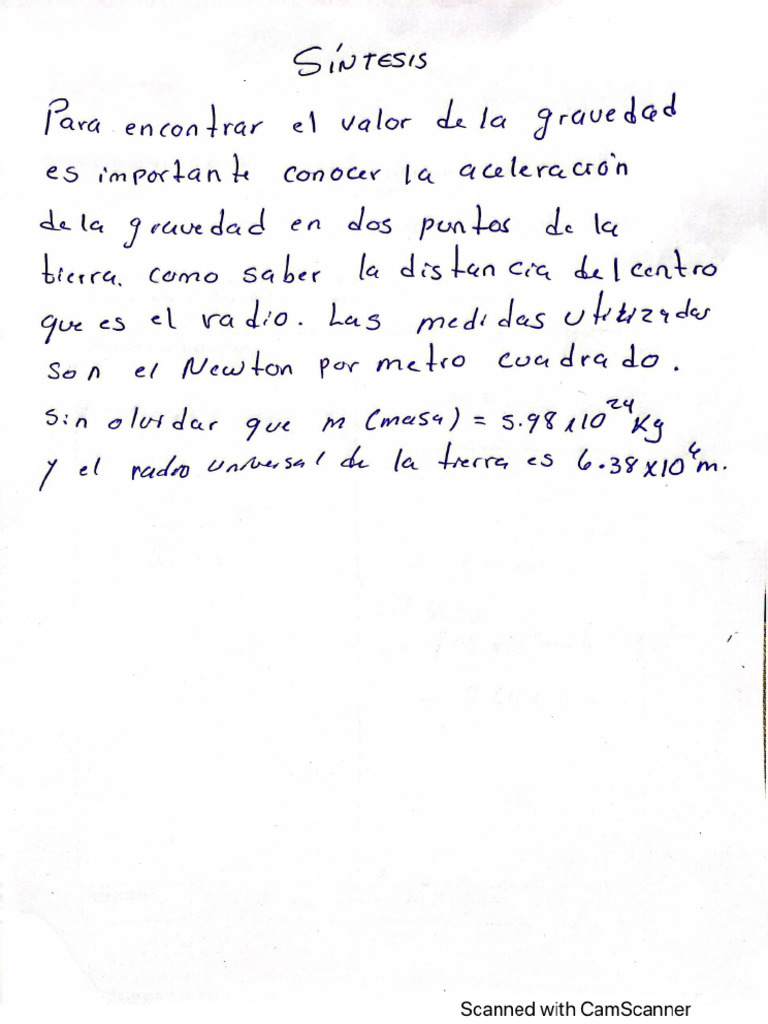 SÍNTESIS
Para encontrar el valor de la gravedad
es importante conocer la aceleración
de la gravedad en dos puntos de la
tierra. como saber la distancia del centro
que es el radio. Las medidas utilizadas
son el Newton por metro cuadrado.
Sin olvidar que m (masa) = 5.98 x10²⁴ Kg
y el radio universal de la tierra es 6.38x10⁶m.
Scanned with CamScanner